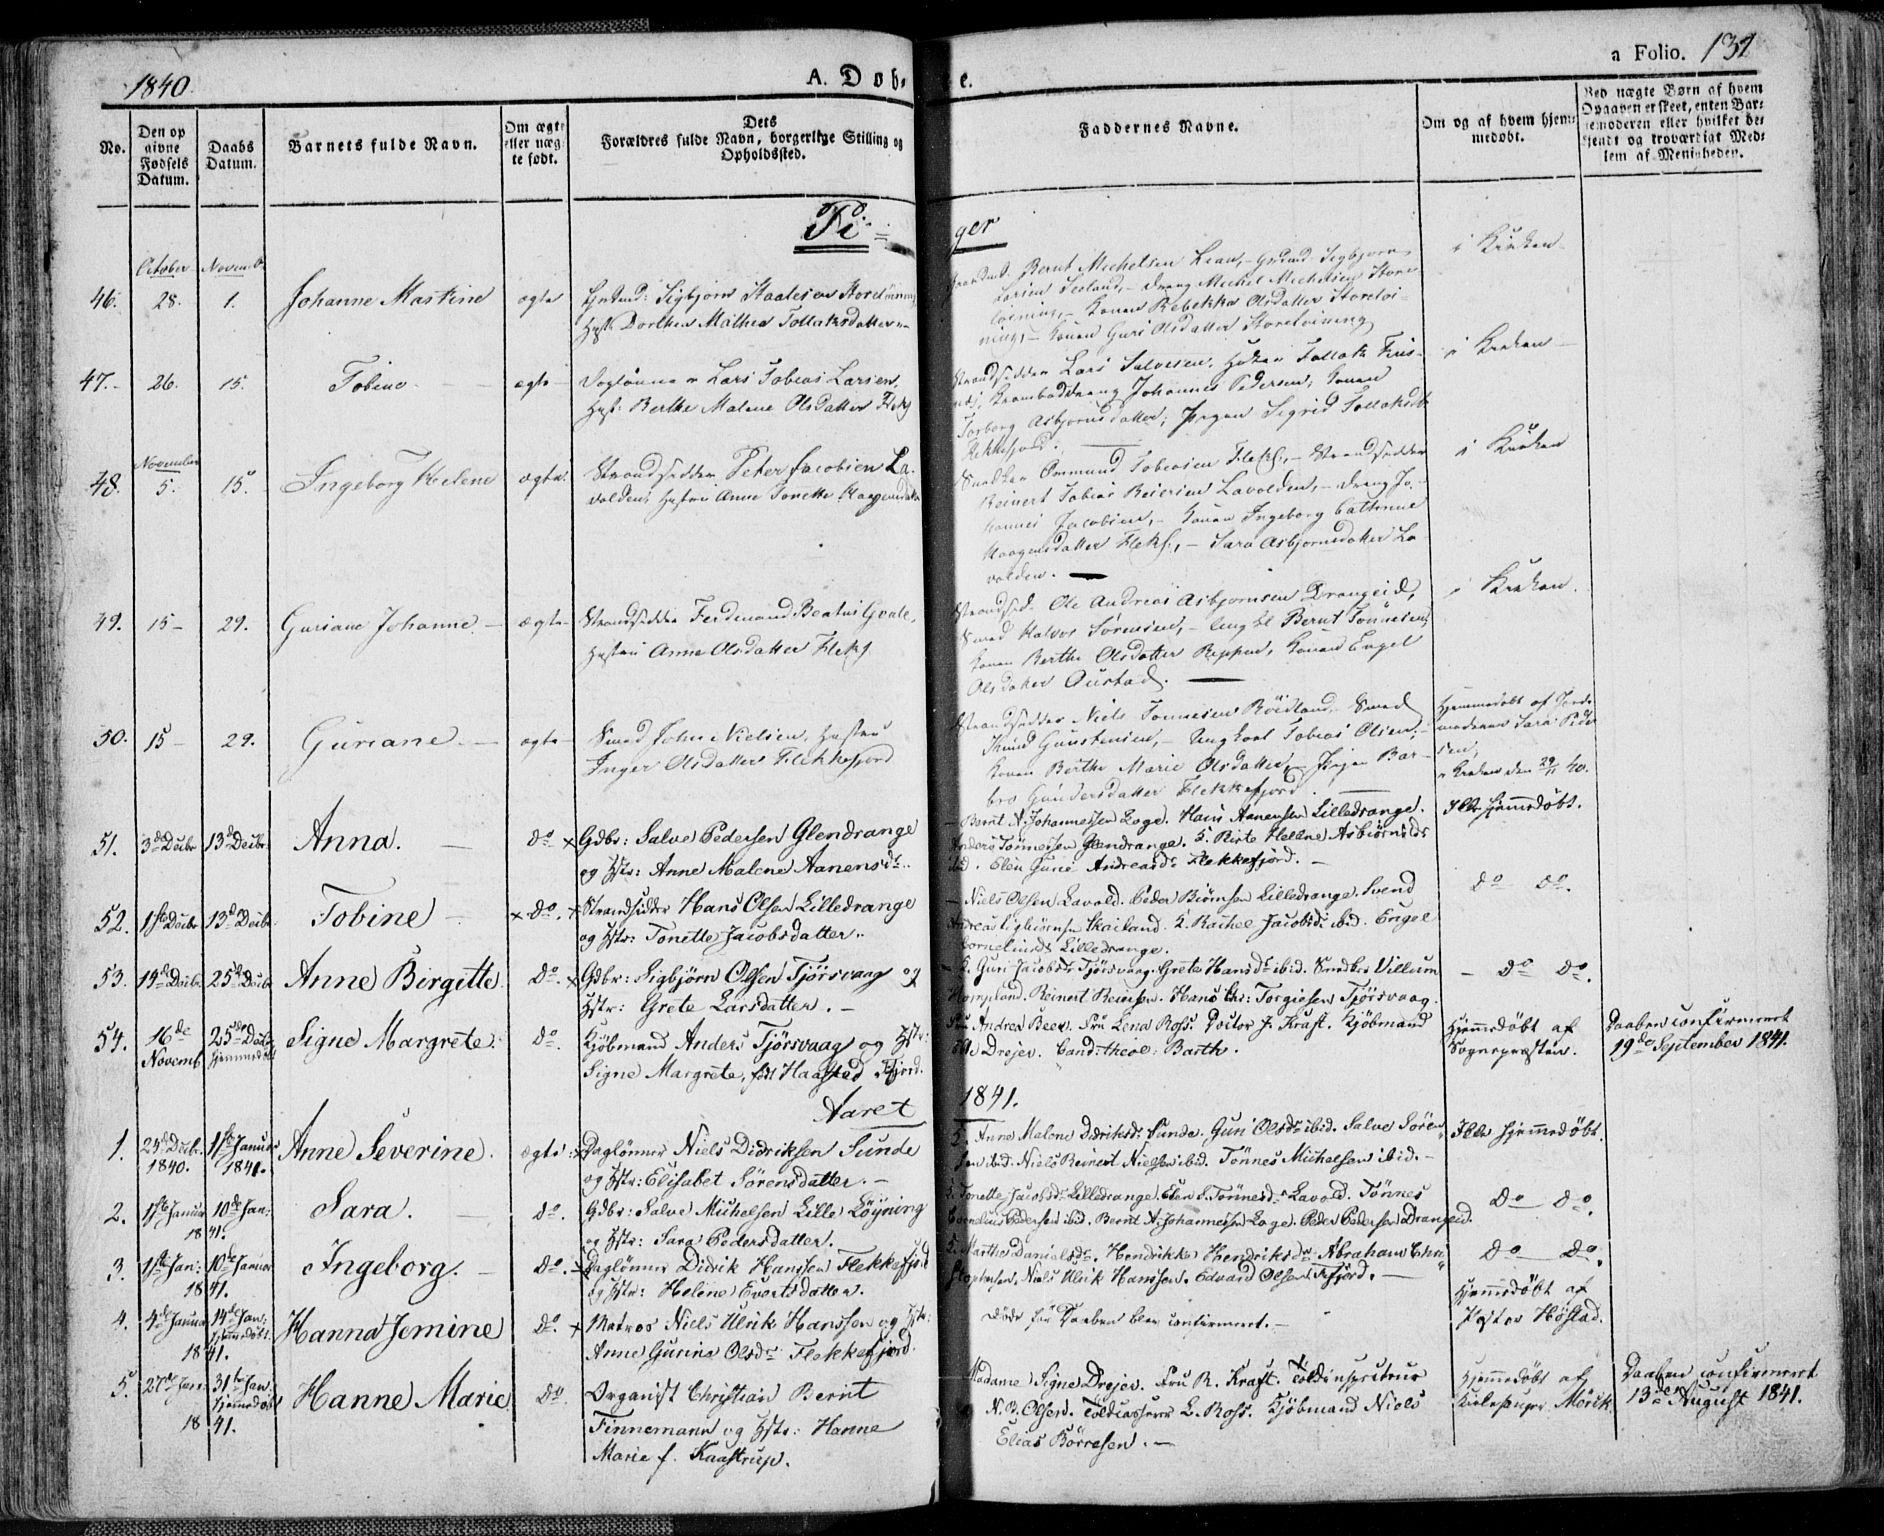 1840.
A. Døb- e.
a Folio. 131
No.
Den op
givne
Fødsels
Datum.
Daabs
Datum.
Barnets fulde Navn.
Om ægte
eller uæg-
te født.
Dets
Forældres fulde Navn, borgerlige Stilling og
Opholdssted.
Faddernes Navne.
Om og af hvem hjem-
medøbt.
Ved uægte Børn af hvem
Opgaven er skeet, enten Bar-
nemoderen eller hvilket be-
kjendt og troværdigt Med-
lem af Menigheden.
Pi- ger
October Novemb.
46. 28. 1. Johanne Mastine ægte
Sigbjørn
Dorthea Malhea Tollaksdatter
Bernt Michelsen
Konen Rebekka Olsdatter
Konen Guri Olsdatter
i Kirken
47. 26. 15. Tobine ægte
Lars Tobias Larsen,
Berthe Malene Olsdatter Flekf
Strandsidder Lars Salvesen,
Johannes Pedersen, Konen
Torborg Asbjornsdatter, Sigrid
Flekkefjord.
i Kirken
November
48. 5. 15. Ingeborg Helene ægte
Strandsidder Peter Jacobsen La-
volden,
Ommund Tobiasen Flekf, – Strandsidder
Reinert Tobias Lavolden, – Dreng Jo-
hannes Jacobsen, – Konen Ingeborg
Flekf, – Sara Asbjornsdatter La-
volden.
i Kirken
49. 15 – 29. Guriane Johanne – ægte
Strandsidder Ferdinand Beatus
Hustru Anne Olsdatter Flekf
Strandsid. Ole Andreas Asbjornsen Drangeid,
Smed Halvor Sørensen, – Bernt Tønnesen,
Konen Berthe Olsdatter Konen Engel
Olsdatter
i Kirken.
50. 15 – 29. Guriane. – ægte
Smed John Nielsen, Hustru
Inger Olsdatter Flekkefjord
Strandsidder Niels Tønnesen Smed
Knud Gunstensen, – Ungkarl Tobias Olsen, –
Konen Berthe Marie Olsdatter, – Bar-
bro Gundersdatter Flekkefjord
Hjemmedøbt af Jorde-
moderen Sara Peder
sen,
i Kirken den 29/11 40.
51. 3d Decbr 13d Decbr. Anna. – Do
Gdbr: Salve Pedersen Glendrange
og Hstr: Anne Malene Aanensdr.
– Bernt A. Johannessen Loge. Hans Aanensen Lilledrange.
Anders Tønnessen Glendrange. K. Birte Helene Asbiørnsdr
ibid. Elen Gurie Andreasdr Flekkefjord. –
Ikke hjemmedøbt.
52. 1ste Decbr 13d Decbr. Tobine – Do.
Strandsidder Hans Olsen Lilledrange
og Hstr: Tonette Jacobsdatter.
– Niels Olsen Lavold. Peder Biørnsen Lilledrange. Svend
Andreas Sigbiørnsen Skailand. K. Rachel Jacobsdr ibid. Engel
Corneliusdr Lilledrange.
Do Do.
53. 19d Decbr. 25d Decbr Anne Birgitte. Do.
Gdbr: Sigbjørn Olsen Tjørsvaag og
Hstr: Grete Larsdatter. –
– K. Guri Jacobsdr Tjørsvaag. Grete Hansdr ibid. Snedker Villum
Reinert Reiersen. Hans Chr: Torgiesen Tjørsvaag.
– Do Do.
54. 16de Novemb. 25de Decbr Hjemmedøbt Signe Margrete. Do.
Kjøbmand Anders Tjørsvaag og Hstr:
Signe Margrete, født Haastad Ffjord.
Fru Andrea Beer. Fru Lena Ross. Doctor J. Kraft. Kjøbmand
Ole Drejer. Cand: theol: Barth.
Hjemmedøbt af
Sognepresten.
Daaben confirmeret
19de September 1841.
Aaret 1841.
1. 24d Decbr. 1840. 1ste Januar 1841. Anne Severine. ægte
Daglønner Niels Didriksen Sunde
og Hstr: Elisabet Sørensdatter. –
K. Anne Malene Didriksdr: Sunde. Guri Olsdr ibid. Salve Søren-
sen ibid. Niels Reinert Nielsen ibid. Tønnes Michelsen ibid. –
Ikke hjemmedøbt.
2. 1ste Januar 10de Jan: 1841. Sara. – Do.
Gdbr: Salve Michelsen Lille Løyning
og Hstr: Sara Pedersdatter.
K. Tonette Jacobsdr. Lilledrange. Elen S. Tønnesdr Lavold. Tønnes
Cornelius Pedersen ibid. Bernt A. Johannessen Loge. Peder Pedersen Drangeid.
Do Do.
3. 1ste Jan: 10de Januar 1841. Ingeborg. – Do.
Daglønner Didrik Hanssen Flekkefjord
og Hstr: Helene Evertsdatter.
K. Marthe Danielsdr. Hendrikke Hendriksdr Abraham Chri-
stophersen. Niels Ulrik Hanssen. Edvard Olsen Ffjord. –
Do Do.
4. 4de Januar 14de Jan: hjemmedøbt. 1841. Hanna Jemine Do.
Matros Niels Ulrik Hanssen og Hstr:
Anne Gurine Olsdr Flekkefjord.
Døde før Daaben blev confirmeret. –
Hjemmedøbt af
Pastor Høstad.
5. 27de Jan: 31te Jan. hjemmedøbt 1841. Hanne Marie Do.
Organist Christian Bernt
Finnemann og Hstr: Hanne
Marie f. Kaastrup.
Madame Signe Drejer. Fru R. Kraft. Toldinspecteur
N. B. Olsen. Toldcasserer L. Ross. Kjøbmand Niels
Elias Børresen. –
Hjemmedøbt af
Kirkesanger Mørik
Daaben confirmeret
13de August 1841.